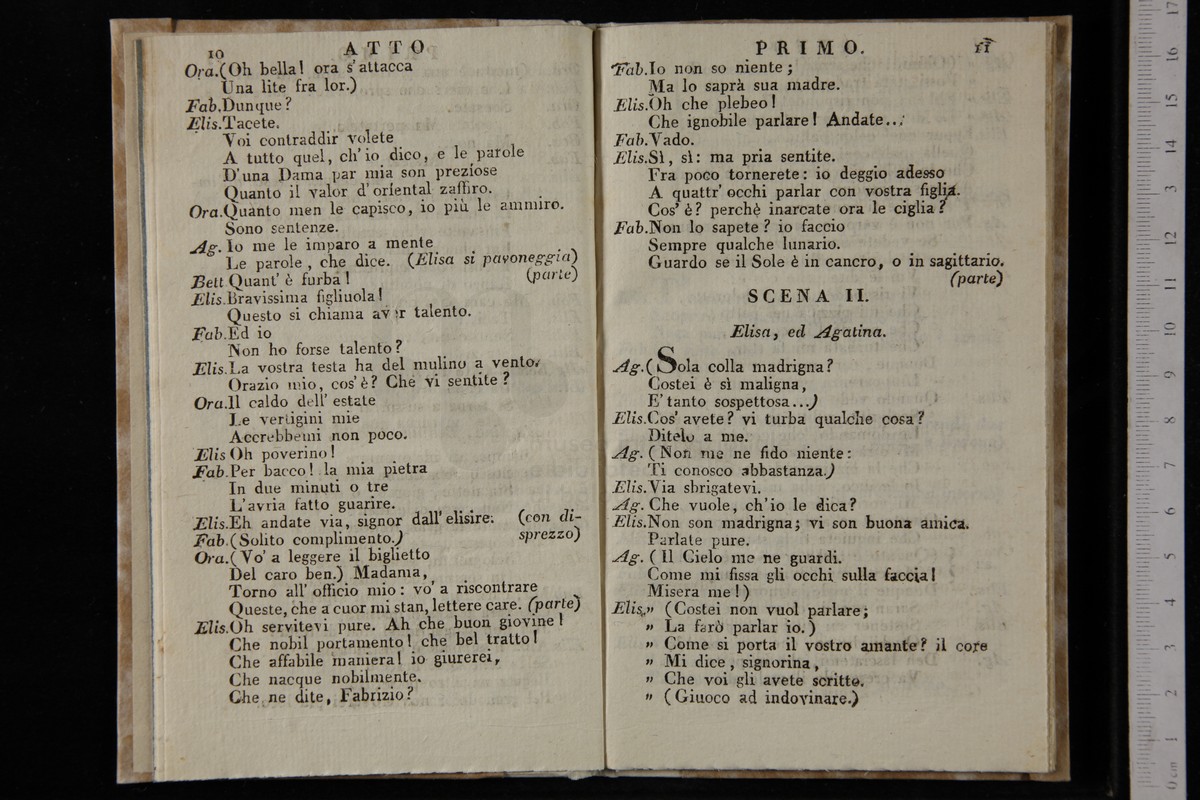 10 ATTO
Ora.(Oh bella! ora s'attacca
Una lite fra lor.)
Fab.Dunque?
Elis.Tacete.
Voi contraddir volete
A tutto quel, ch'io dico, e le parole
D'una Dama par mia son preziose
Quanto il valor d'oriental zaffiro.
Ora.Quanto men le capisco, io più le ammiro.
Sono sentenze.
Ag. Io me le imparo a mente
Le parole, che dice. (Elisa si pavoneggia)
Bett Quant'è furba! (parte)
Elis.Bravissima figliuola!
Questo si chiama aver talento.
Fab.Ed io
Non ho forse talento?
Elis.La vostra testa ha del mulino a vento.
Orazio mio, cos'è? Che vi sentite?
Ora.Il caldo dell'estate
Le vertigini mie
Accrebbemi non poco.
Elis Oh poverino!
Fab.Per bacco! la mia pietra
In due minuti o tre
L'avria fatto guarire.
Elis.Eh andate via, signor dall'elisire. (con di-
Fab.(Solito complimento.) sprezzo)
Ora.(Vo' a leggere il biglietto
Del caro ben.) Madama,
Torno all'officio mio: vo' a riscontrare
Queste, che a cuor mi stan, lettere care. (parte)
Elis.Oh servitevi pure. Ah che buon giovine!
Che nobil portamento! che bel tratto!
Che affabile maniera! io giurerei,
Che nacque nobilmente.
Che ne dite, Fabrizio?
PRIMO. 11
Fab.Io non so niente;
Ma lo saprà sua madre.
Elis.Oh che plebeo!
Che ignobile parlare! Andate...
Fab.Vado.
Elis.Sì, sì: ma pria sentite.
Fra poco tornerete: io deggio adesso
A quattr'occhi parlar con vostra figlia.
Cos'è? perchè inarcate ora le ciglia?
Fab.Non lo sapete? io faccio
Sempre qualche lunario.
Guardo se il Sole è in cancro, o in sagittario.
(parte)
SCENA II.
Elisa, ed Agatina.
Ag.(Sola colla madrigna?
Costei è sì maligna,
E'tanto sospettosa...)
Elis.Cos'avete? vi turba qualche cosa?
Ditelo a me.
Ag. (Non me ne fido niente:
Ti conosco abbastanza.)
Elis.Via sbrigatevi.
Ag. Che vuole, ch'io le dica?
Elis.Non son madrigna; vi son buona amica.
Parlate pure.
Ag. (Il Cielo me ne guardi.
Come mi fissa gli occhi sulla faccia!
Misera me!)
Elis." (Costei non vuol parlare;
" La farò parlar io.)
" Come si porta il vostro amante? il core
" Mi dice, signorina,
" Che voi gli avete scritto.
" (Giuoco ad indovinare.)
0 cm 1 2 3 4 5 6 7 8 9 10 11 12 13 14 15 16 17